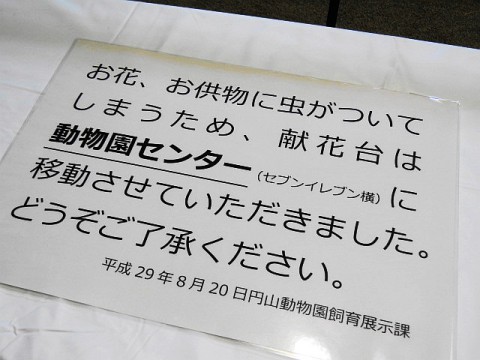 お花、お供物に虫がついて
しまうため、献花台は
動物園センター（セブンイレブン横）に
移動させていただきました。
どうぞご了承ください。
平成29年8月20日円山動物園飼育展示課